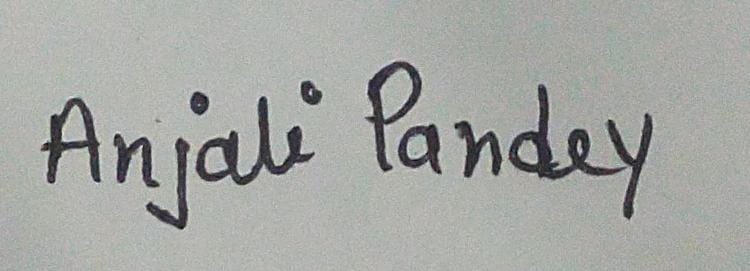 Anjali Pandey